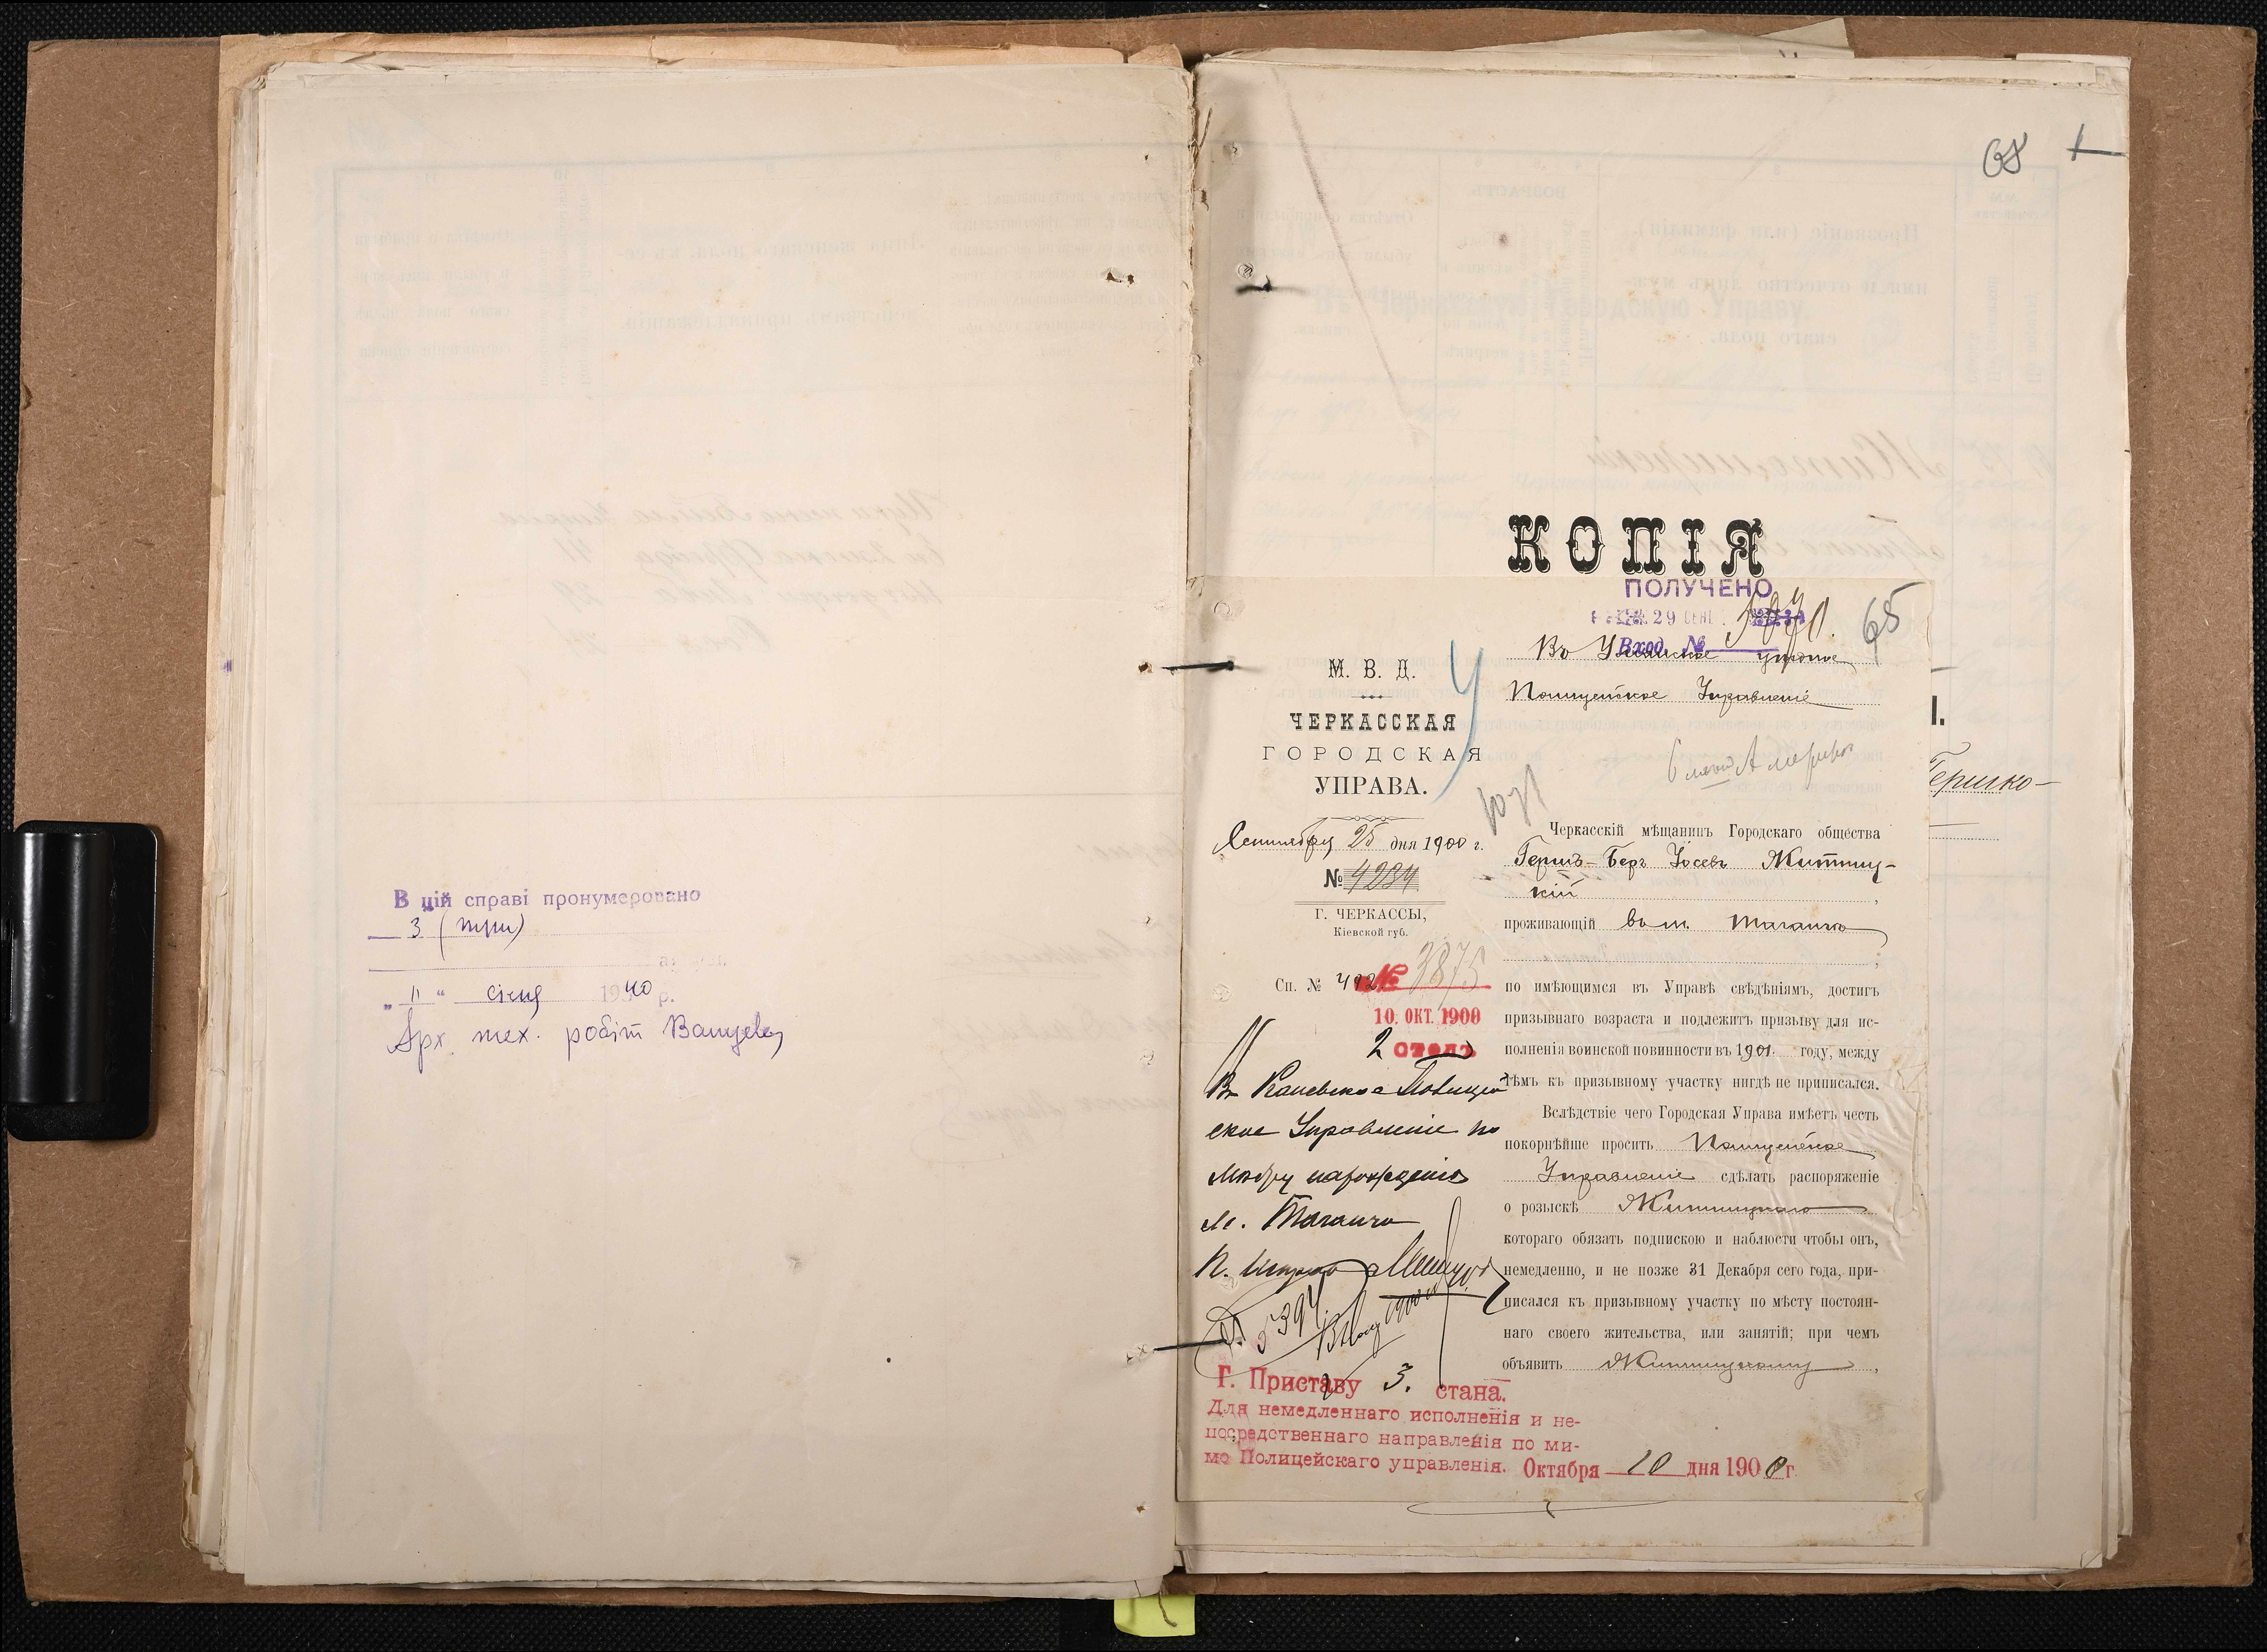 В цій справі пронумеровано
3 (три)
„ 11 “ січня 1940 р.
Арх. тех. робіт
68
1
КОПІЯ
ПОЛУЧЕНО
29 СЕНТ.
Вход. №
65
Въ Уманское уѣздное
Полицейское Управленіе
М. В. Д.
ЧЕРКАССКАЯ
ГОРОДСКАЯ
УПРАВА.
Сентября 25 дня 1900 г.
№ 4234
Г. ЧЕРКАССЫ,
Кіевской губ.
Сп. № 492
№ 3875
10. ОКТ. 1900
2 столъ
Въ Каневское Полицей
ское Управленіе по
мѣсту нарожденія
м. Таганча
Г. Приставу 3. стана.
Для немедленнаго исполненія и не-
посредственнаго направленія по ми-
мо Полицейскаго управленія. Октября 10 дня 1900 г.
Черкасскій мѣщанинъ Городскаго общества
Гершъ-Беръ Іосевъ Житниц-
кій,
проживающій въ м. Таганча
;
по имѣющимся въ Управѣ свѣдѣніямъ, достигъ
призывнаго возраста и подлежитъ призыву для ис-
полненія воинской повинности въ 1901 году, между
тѣмъ къ призывному участку нигдѣ не приписался.
Вслѣдствіе чего Городская Управа имѣетъ честь
покорнѣйше просить Полицейское
Управленіе сдѣлать распоряженіе
о розыскѣ Житницкаго
котораго обязать подпискою и наблюсти чтобы онъ,
немедленно, и не позже 31 Декабря сего года, при-
писался къ призывному участку по мѣсту постоян-
наго своего жительства, или занятій; при чемъ
объявить Житницкому,
Гершко-